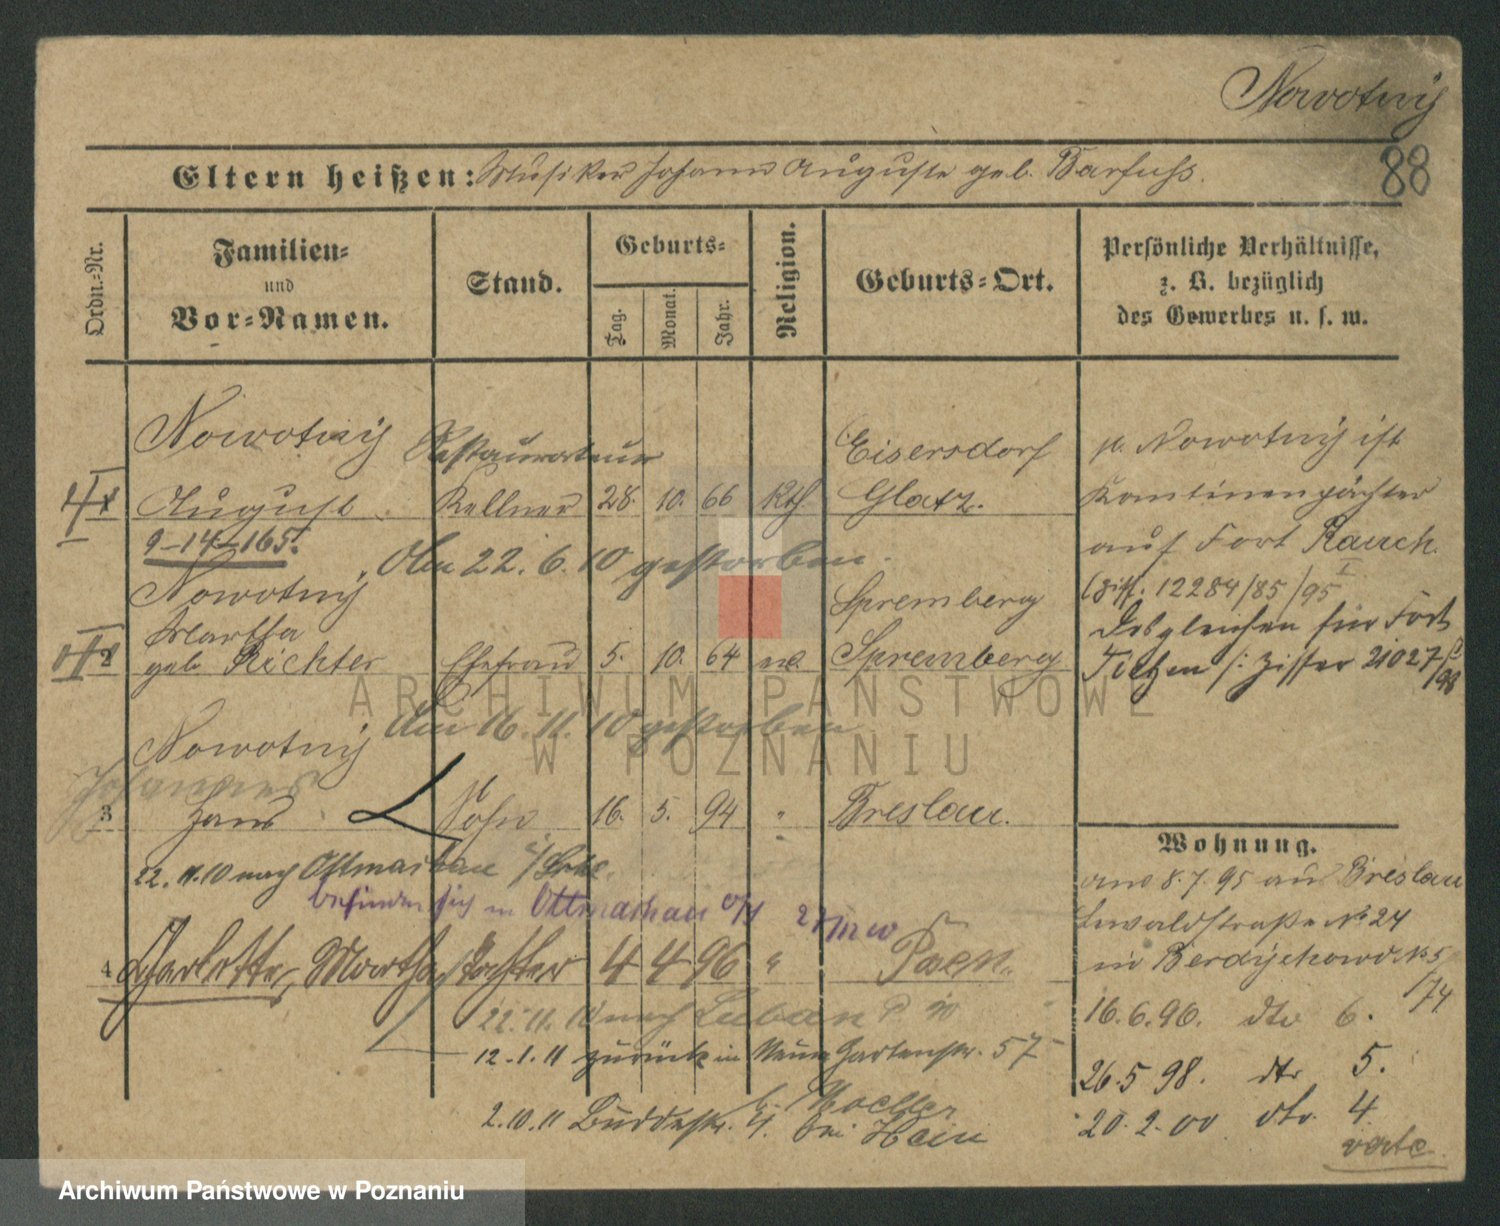 Nowotny
88
Eltern heißen: Musiker Johann Auguste geb. Barfuss.
Ordn.-Nr.
Familien-
und
Vor-Namen.
Stand.
Geburts-
Tag.
Monat.
Jahr.
Religion.
Geburts-Ort.
Persönliche Verhältnisse,
z. B. bezüglich
des Gewerbes u. s. w.
Nowotny
Restaurateur
Eisersdorf
p. Nowotny ist
1 August Kellner 28. 10. 66 Kth. Glatz.
Kantinenpächter
9-14-165.
auf Fort Rauch.
Am 22.6.10 gestorben.
Nowotny
Spremberg
12284/85/95 I
Martha
Desgleichen für Fort
2 geb. Richter Ehefrau 5. 10. 64 ev. Spremberg
Tietzen /: Ziffer 21027/98
ARCHIWUM PAŃSTWOWE
Am 16.11.10 gestorben
W POZNANIU
Nowotny
Johannes
3 Hans Sohn 16. 5. 94 " Breslau.
Wohnung.
22.11.10 nach Ottmachau
befindet sich in Ottmachau
4 Charlotte, Martha Tochter 4 4 96 " Posen
22.11.10 nach Luban
12.1.11 zurück in Gartenstr. 57
2.10.11 Buddestr. 4. bei Hein
b. Moeller
am 8.7.95 aus Breslau
Lewaldstraße No 24
in Berdychowo No 5/74
16.6.96. dto 6.
26.5 98. dto 5.
20.2.00 dto. 4
verte
Archiwum Państwowe w Poznaniu